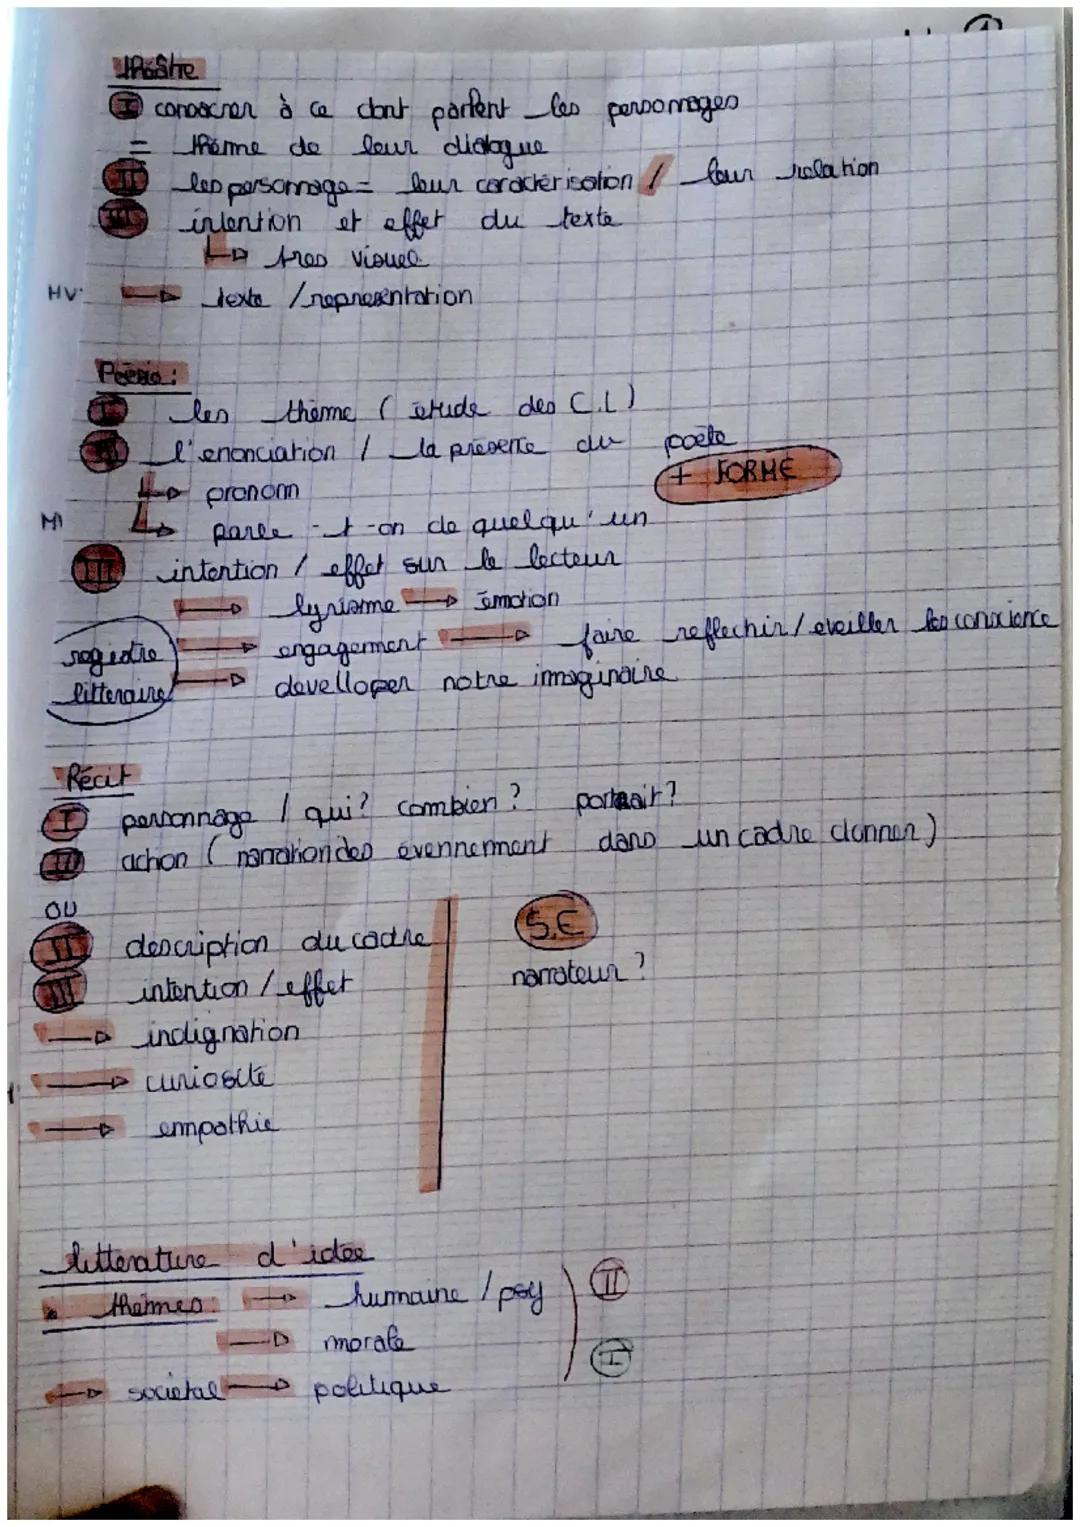 Théâtre
I consacrer à ce dont parlent les personnages
= thème de leur dialogue
II les personnage = leur caractérisation / leur relation
III intention et effet du texte
tres visuel
HV
texte / representation
Poésie :
I les thème ( etude des C.L )
II l'enonciation / la présence du poète
+ FORME
pronom
parle -t-on de quelqu'un
III intention / effet sur le lecteur
lyrisme → émotion
registre litteraire
engagement → faire reflechir / eveiller les conscience
develloper notre imaginaire
Récit
I personnage / qui ? combien ? portrait ?
II action ( narration des évennement dans un cadre donner )
OU
II description du cadre
S.E
III intention / effet
narrateur ?
→ indignation
→ curiosité
→ empathie
litterature d'idée
thèmes : → humaine / psy
II
→ morale
I
→ societal → politique